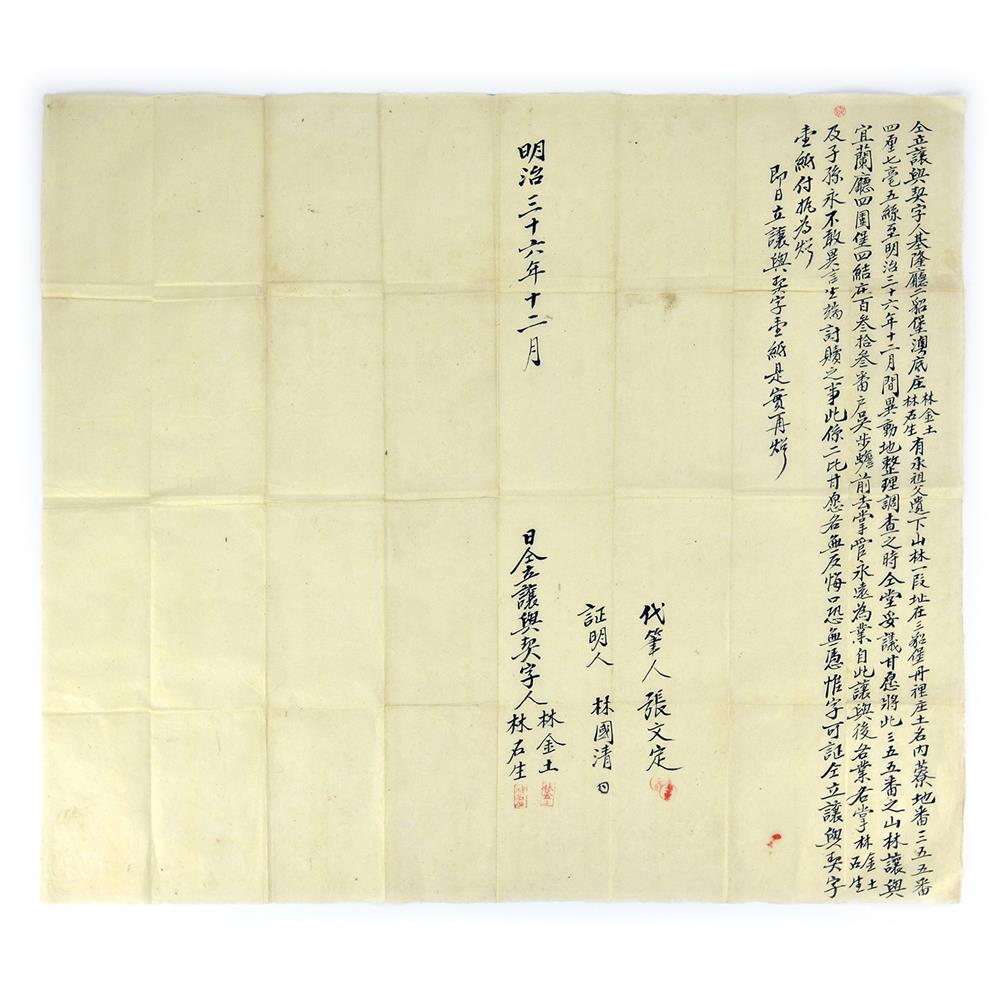 仝立讓與契字人基隆廳三貂堡澳底庄林金土林石生有承祖父遺下山林一段址在三貂堡丹裡庄土名內藔地番三五五番
四厘七毫五絲至明治三十六年十二月間異動地整理調查之時仝堂妥議甘愿將此三五五番之山林讓與
宜蘭廳四圍堡四結庄百叁拾叁番戶吳步蟾前去掌管永遠為業自此讓與後各業各掌林金土林石生
及子孫永不敢異言生端討贖之事此係二比甘愿各無反悔口恐無憑惟字可証仝立讓與契字
壹紙付执為炤
即日立讓與契字壹紙是實再炤
代筆人 張文定
証明人 林國清
明治三十六年十二月 日仝立讓與契字人 林金土 林石生